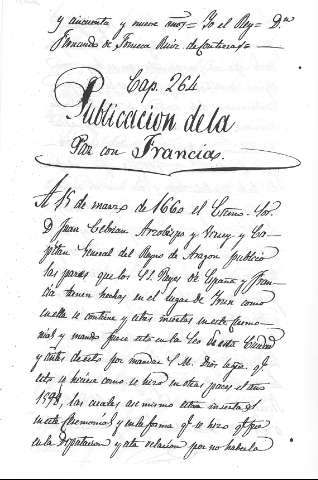 y cincuenta y nueve años = Yo el Rey = Dn
Fernando de Fonseca Ruiz de Contreras =
Cap. 264
Publicacion de la
Paz con Francia.
A 15 de marzo de 1660 el Exmo. Sor.
D Juan Cebrian Arzobispo y Virrey y Ca-
pitan General del Reyno de Aragon publico
las paces que los SS. Reyes de España y Fran-
cia tienen hechas en el lugar de Irun como
en ella se contiene y estan insertas en este Ceremo-
nial y mando fuese esto en la Seo de esta Ciudad
y antes de esto por mandar S. M. Dios
esto se hiciese como se hizo en otras paces el año
1598, las cuales asi mismo estan insertas
en este Ceremonial y en la forma qe. se hizo qe. fue
en la Diputacion y esta relacion por no haberla